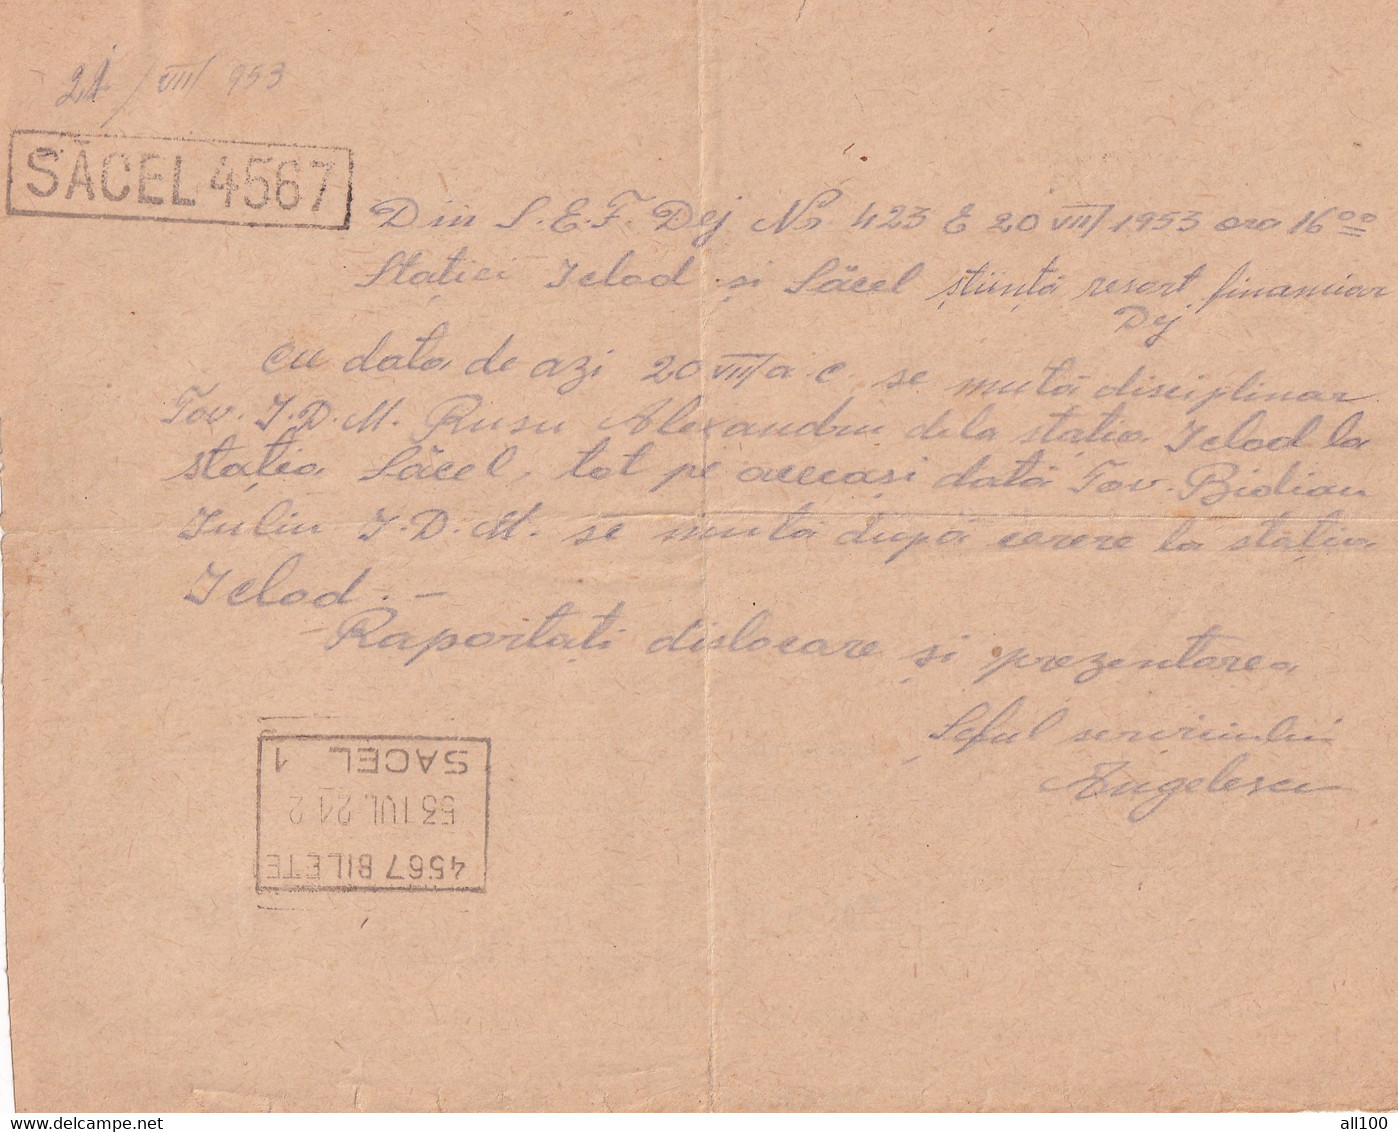 21 / VII / 953
SĂCEL 4567
Din S.E.F. Dej Nr 423 E 20 VII/1953 ora 16⁰⁰
Statiei Iclod și Săcel știință resort financiar
Dej
cu data de azi 20 VII a.c. se mută disciplinar
Tov. I.D.M. Rusu Alexandru dela stația Iclod la
stația Săcel, tot pe aceeași dată Tov. Bidian
Iuliu I.D.M. se mută după cerere la stația
Iclod. –
– Raportați dislocare și prezentarea
Șeful serviciului
Angelescu
SACEL 1
53 IUL. 21 2
4567 BILETE
delcampe.net
all100